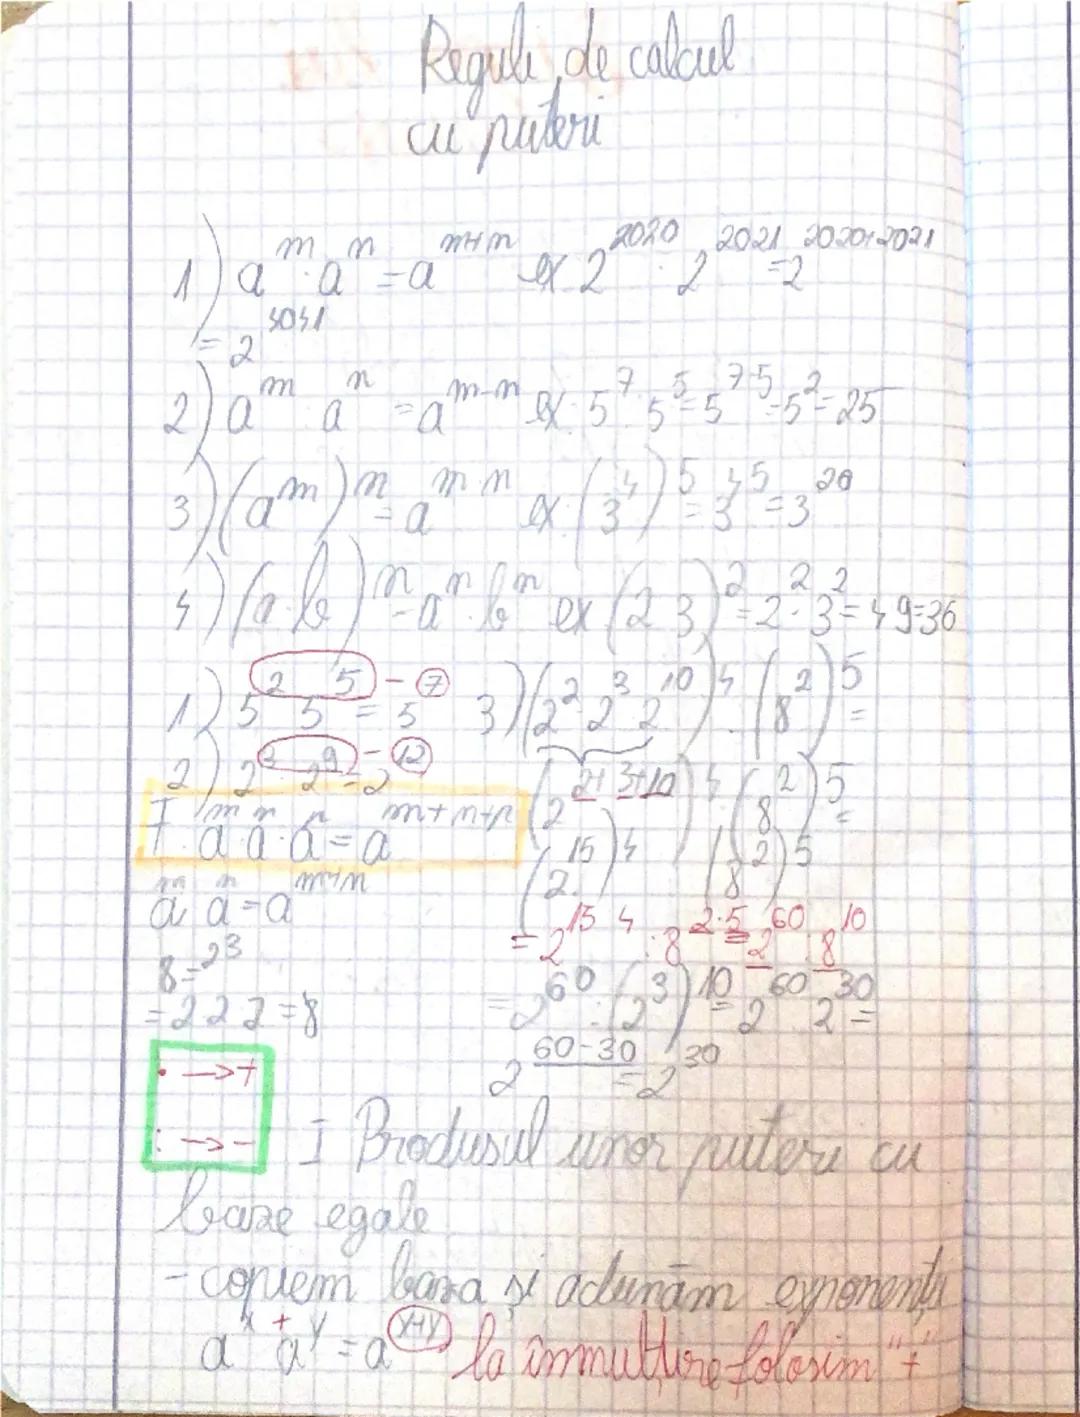 Reguli de calcul
cu puteri
1) a^m · a^n = a^(m+n) ex 2^2020 · 2^2021 = 2^(2020+2021)
= 2^4041
2) a^m : a^n = a^(m-n) ex: 5^7 : 5^5 = 5^(7-5) = 5^2 = 25
3) (a^m)^n = a^(m·n) ex: (3^4)^5 = 3^(4·5) = 3^20
4) (a·b)^n = a^n · b^n ex (2·3)^2 = 2^2 · 3^2 = 4·9=36
1) 5^2 · 5^5 = 5^7
2) 2^3 · 2^9 = 2^12
I a^m · a^n · a^p = a^(m+n+p)
a^m · a^n = a^(m+n)
8 = 2^3
= 2·2·2 = 8
3) (2^2 · 2^3 · 2^10)^4 : (8^2)^5 =
(2^(2+3+10))^4 : (8^2)^5 =
(2^15)^4 : (8^2)^5
= 2^(15·4) : 8^(2·5) = 2^60 : 8^10
= 2^60 : (2^3)^10 = 2^60 : 2^30 =
2^(60-30) = 2^30
· → +
: → -
I Produsul unor puteri cu
baze egale
- copiem baza și adunăm exponenții
a^x + a^y = a^(x+y) la înmulțire folosim "+"